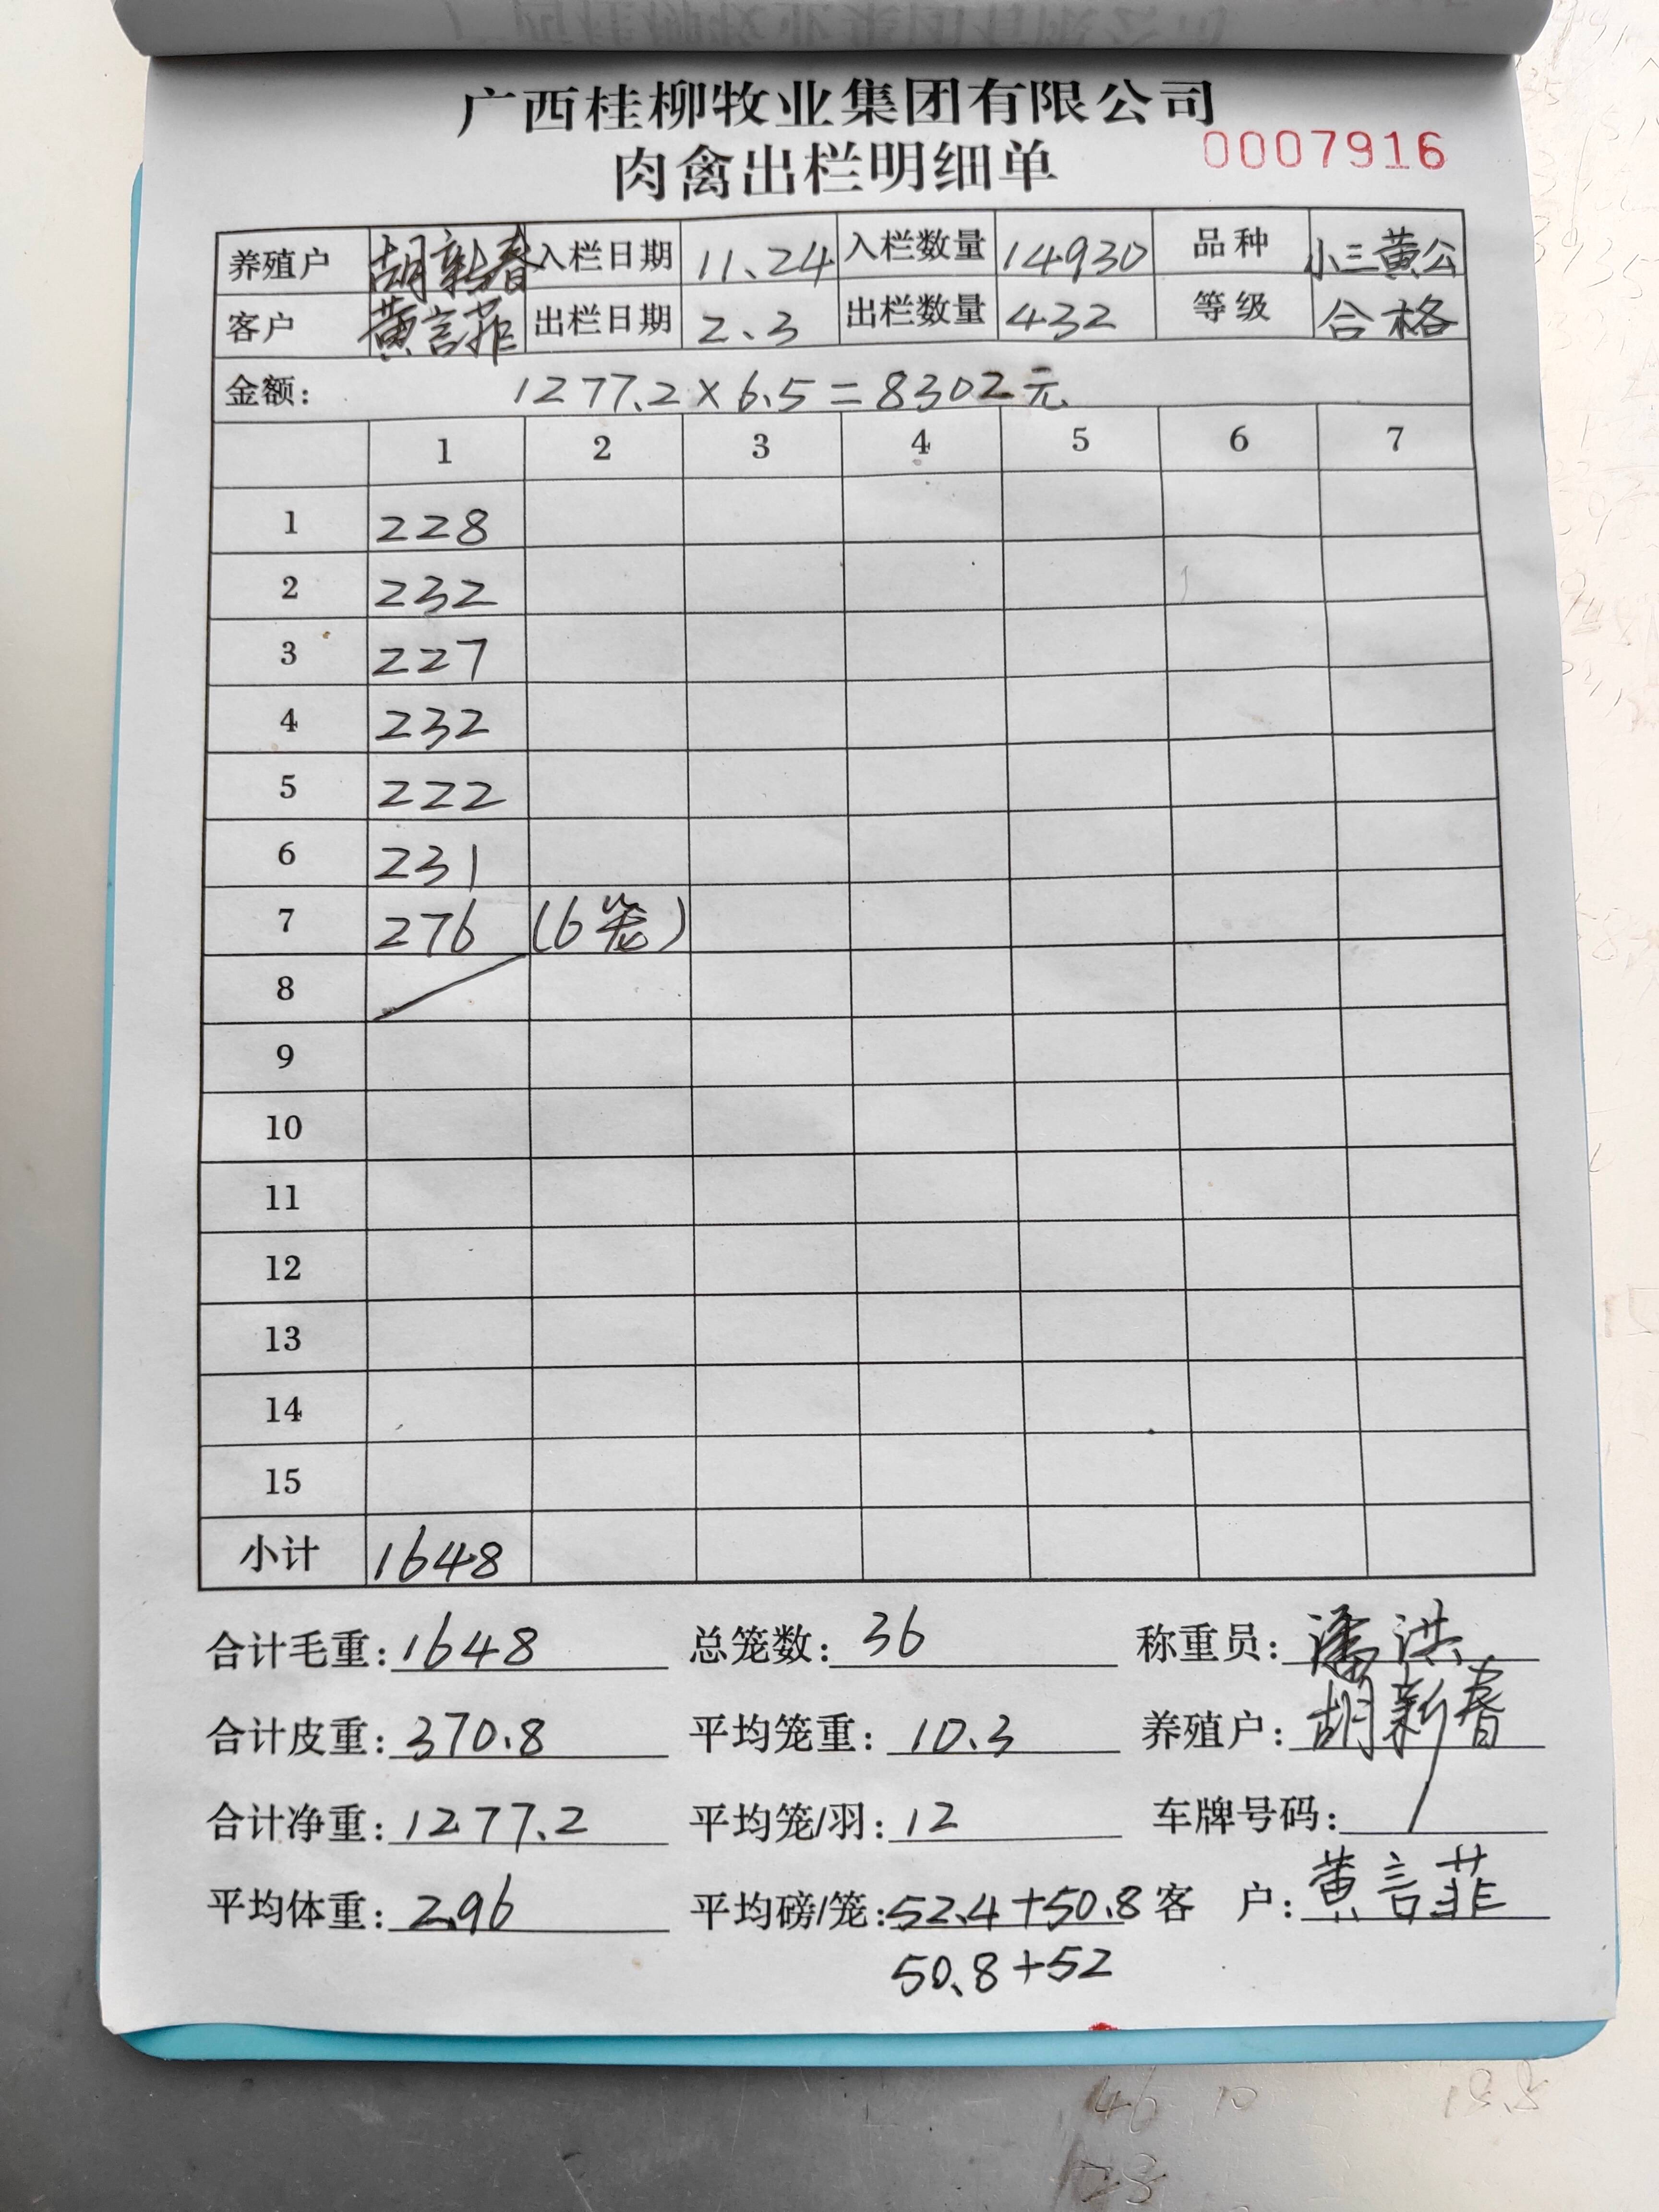 广西桂柳牧业集团有限公司
肉禽出栏明细单 0007916
养殖户 胡新春 入栏日期 11.24 入栏数量 14930 品种 小三黄公
客户 黄言菲 出栏日期 2.3 出栏数量 432 等级 合格
金额: 1277.2×6.5=8302元
1 2 3 4 5 6 7
1 228
2 232
3 227
4 232
5 222
6 231
7 276 (6笼)
8
9
10
11
12
13
14
15
小计 1648
合计毛重: 1648 总笼数: 36 称重员: 潘洪
合计皮重: 370.8 平均笼重: 10.3 养殖户: 胡新春
合计净重: 1277.2 平均笼/羽: 12 车牌号码: /
平均体重: 2.96 平均磅/笼: 52.4+50.8 客 户: 黄言菲
50.8+52